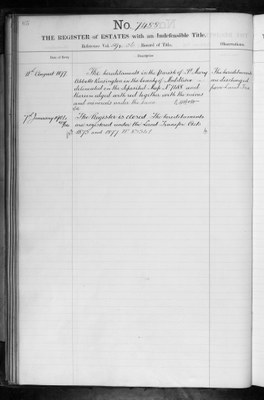 No. 7488
THE REGISTER of ESTATES with an Indefeasible Title.
Reference Vol. Record of Title.
Observations.
Date of Entry.
Description.
11th August 1877
The hereditaments in the parish of St. Mary
Abbotts Kensington in the County of Middlesex
delineated in the deposited Map No. 7488 and
thereon edged with red together with the mines
and minerals under the same
The hereditaments
are discharged
from Land Tax
7th January
The Register is closed. The hereditaments
are registered under the Land Transfer Acts
1875 and 1897